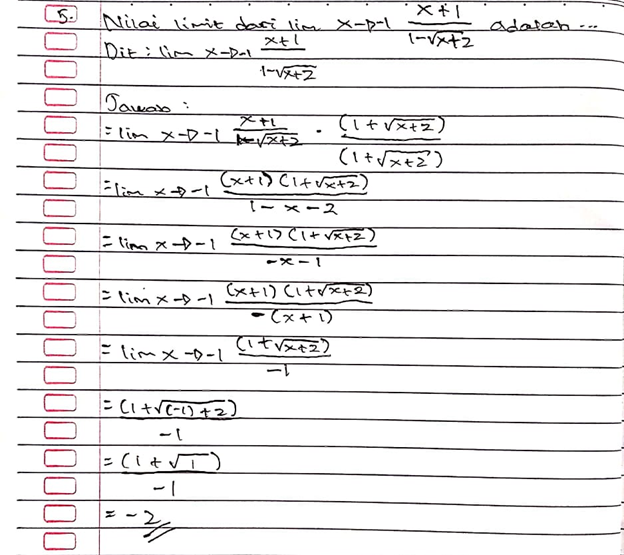 5. Nilai limit dari lim x→-1 (x+1)/(1-√x+2) adalah ...
Dit : lim x→-1 (x+1)/(1-√x+2)
Jawab :
= lim x→-1 (x+1)/(1-√x+2) · (1+√x+2)/(1+√x+2)
= lim x→-1 (x+1)(1+√x+2)/(1-x-2)
= lim x→-1 (x+1)(1+√x+2)/(-x-1)
= lim x→-1 (x+1)(1+√x+2)/(-(x+1))
= lim x→-1 (1+√x+2)/(-1)
= (1+√(-1)+2)/(-1)
= (1+√1)/(-1)
= -2